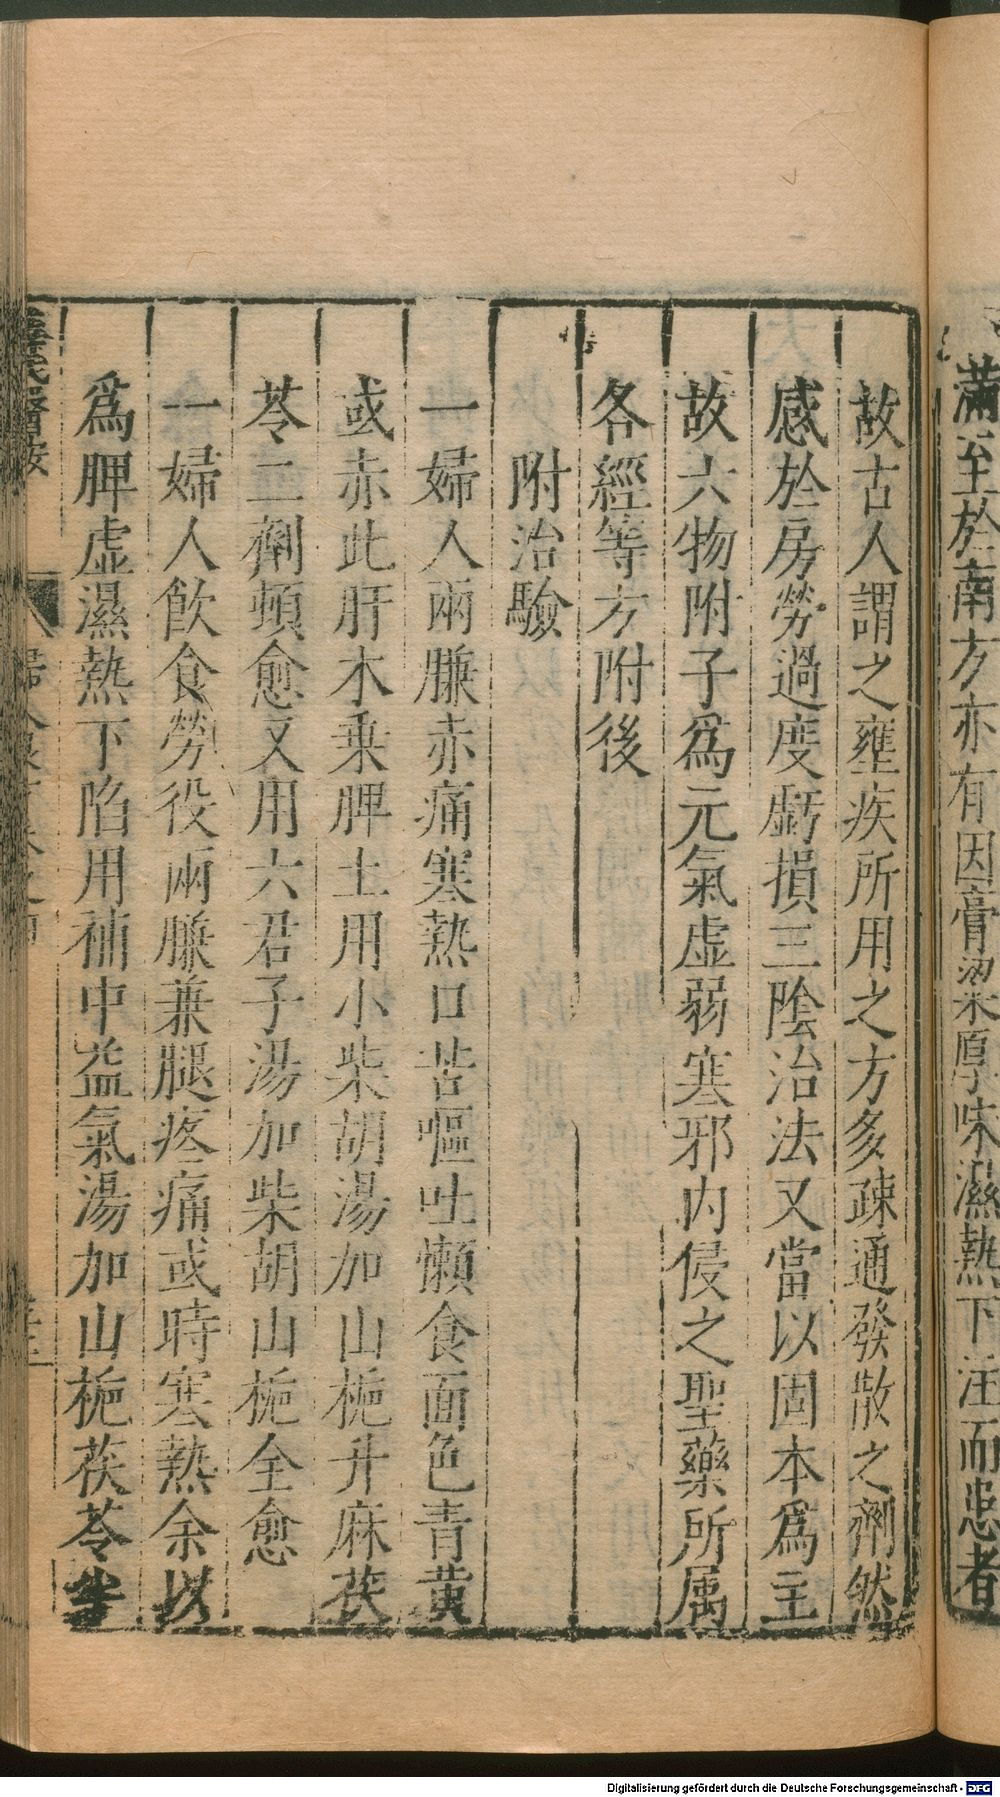 滿至於南方亦有因膏粱厚味濕熱下注而患者
故古人謂之壅疾所用之方多疎通發散之劑然
感於房勞過度虧損三陰治法又當以固本爲主
故六物附子爲元氣虛弱寒邪内侵之聖藥所属
各經等方附後
附治驗
一婦人兩臁赤痛寒熱口苦嘔吐懶食面色青黄
或赤此肝木乗脾土用小柴胡湯加山梔升麻茯
苓二劑頓愈又用六君子湯加柴胡山梔全愈
一婦人飮食勞役兩臁兼腿疼痛或時寒熱余以
爲脾虛濕熱下陷用補中益氣湯加山梔茯苓半
薛氏醫按
Digitalisierung gefördert durch die Deutsche Forschungsgemeinschaft - DFG